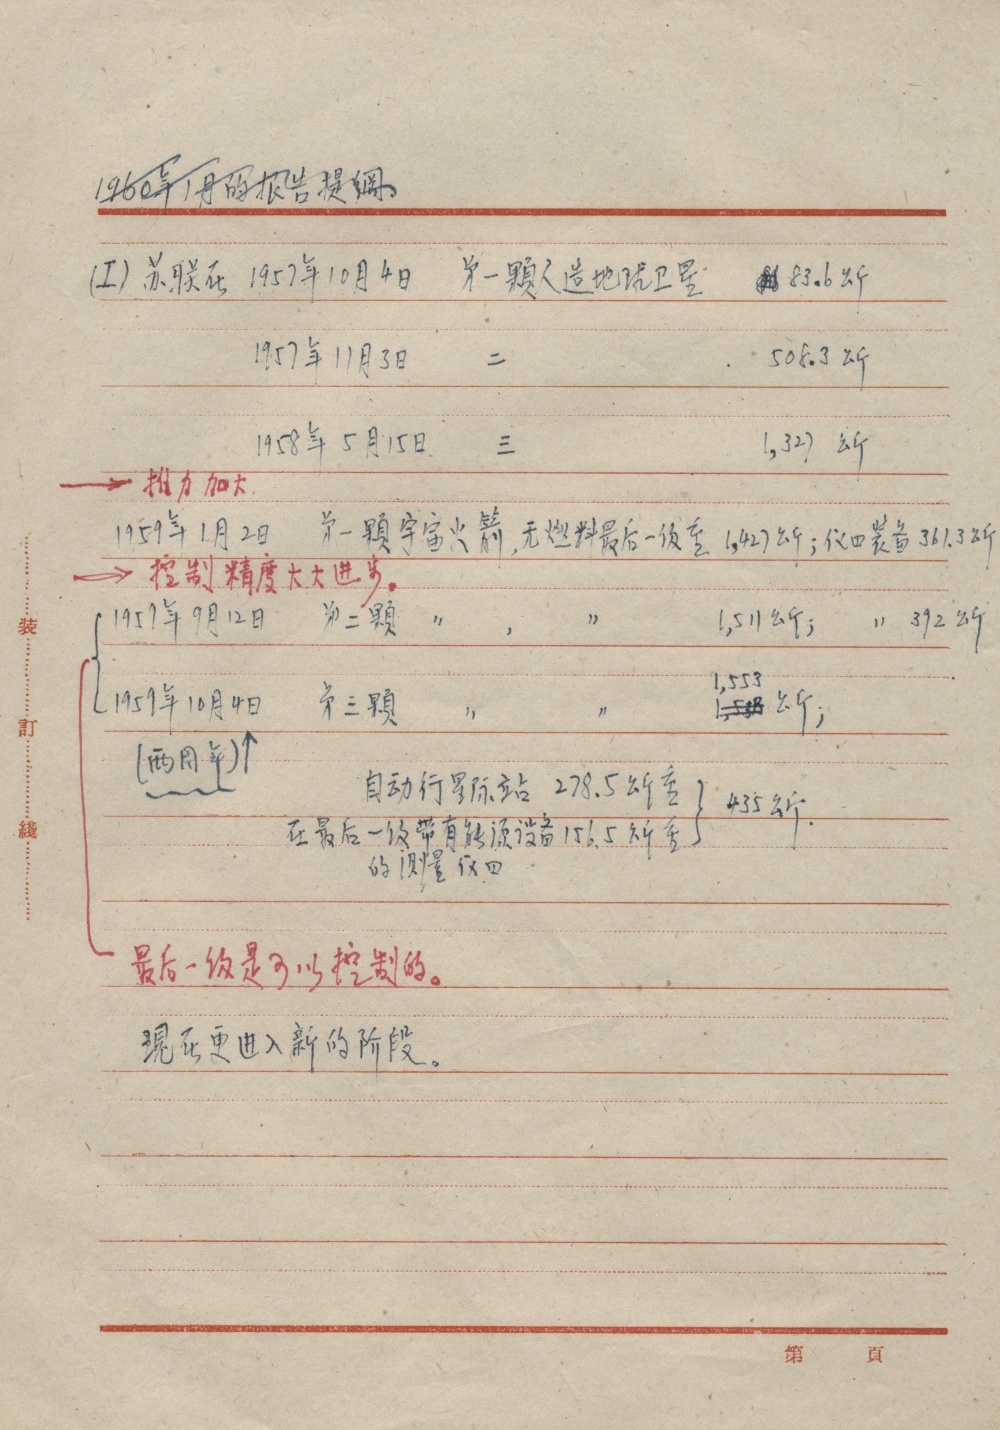 1960年1月的报告提綱。
(I) 苏联在 1957年10月4日 第一顆人造地球卫星 83.6公斤
1957年11月3日 二 508.3公斤
1958年5月15日 三 1,327 公斤
→ 推力加大
1959年1月2日 第一顆宇宙火箭,无燃料最后一级重 1,427公斤;仪四装备361.3公斤
⇒ 控制精度大大进步。
1959年9月12日 第二顆 〃 , 〃 1,511公斤; 〃 392公斤
1,553
1959年10月4日 第三顆 〃 〃 公斤;
(两周年)↑
自动行星际站 278.5公斤重
435公斤.
在最后一级带有能源设备156.5公斤重
的测量仪四
最后一级是可以控制的。
現在更进入新的阶段。
装
訂
綫
第 頁